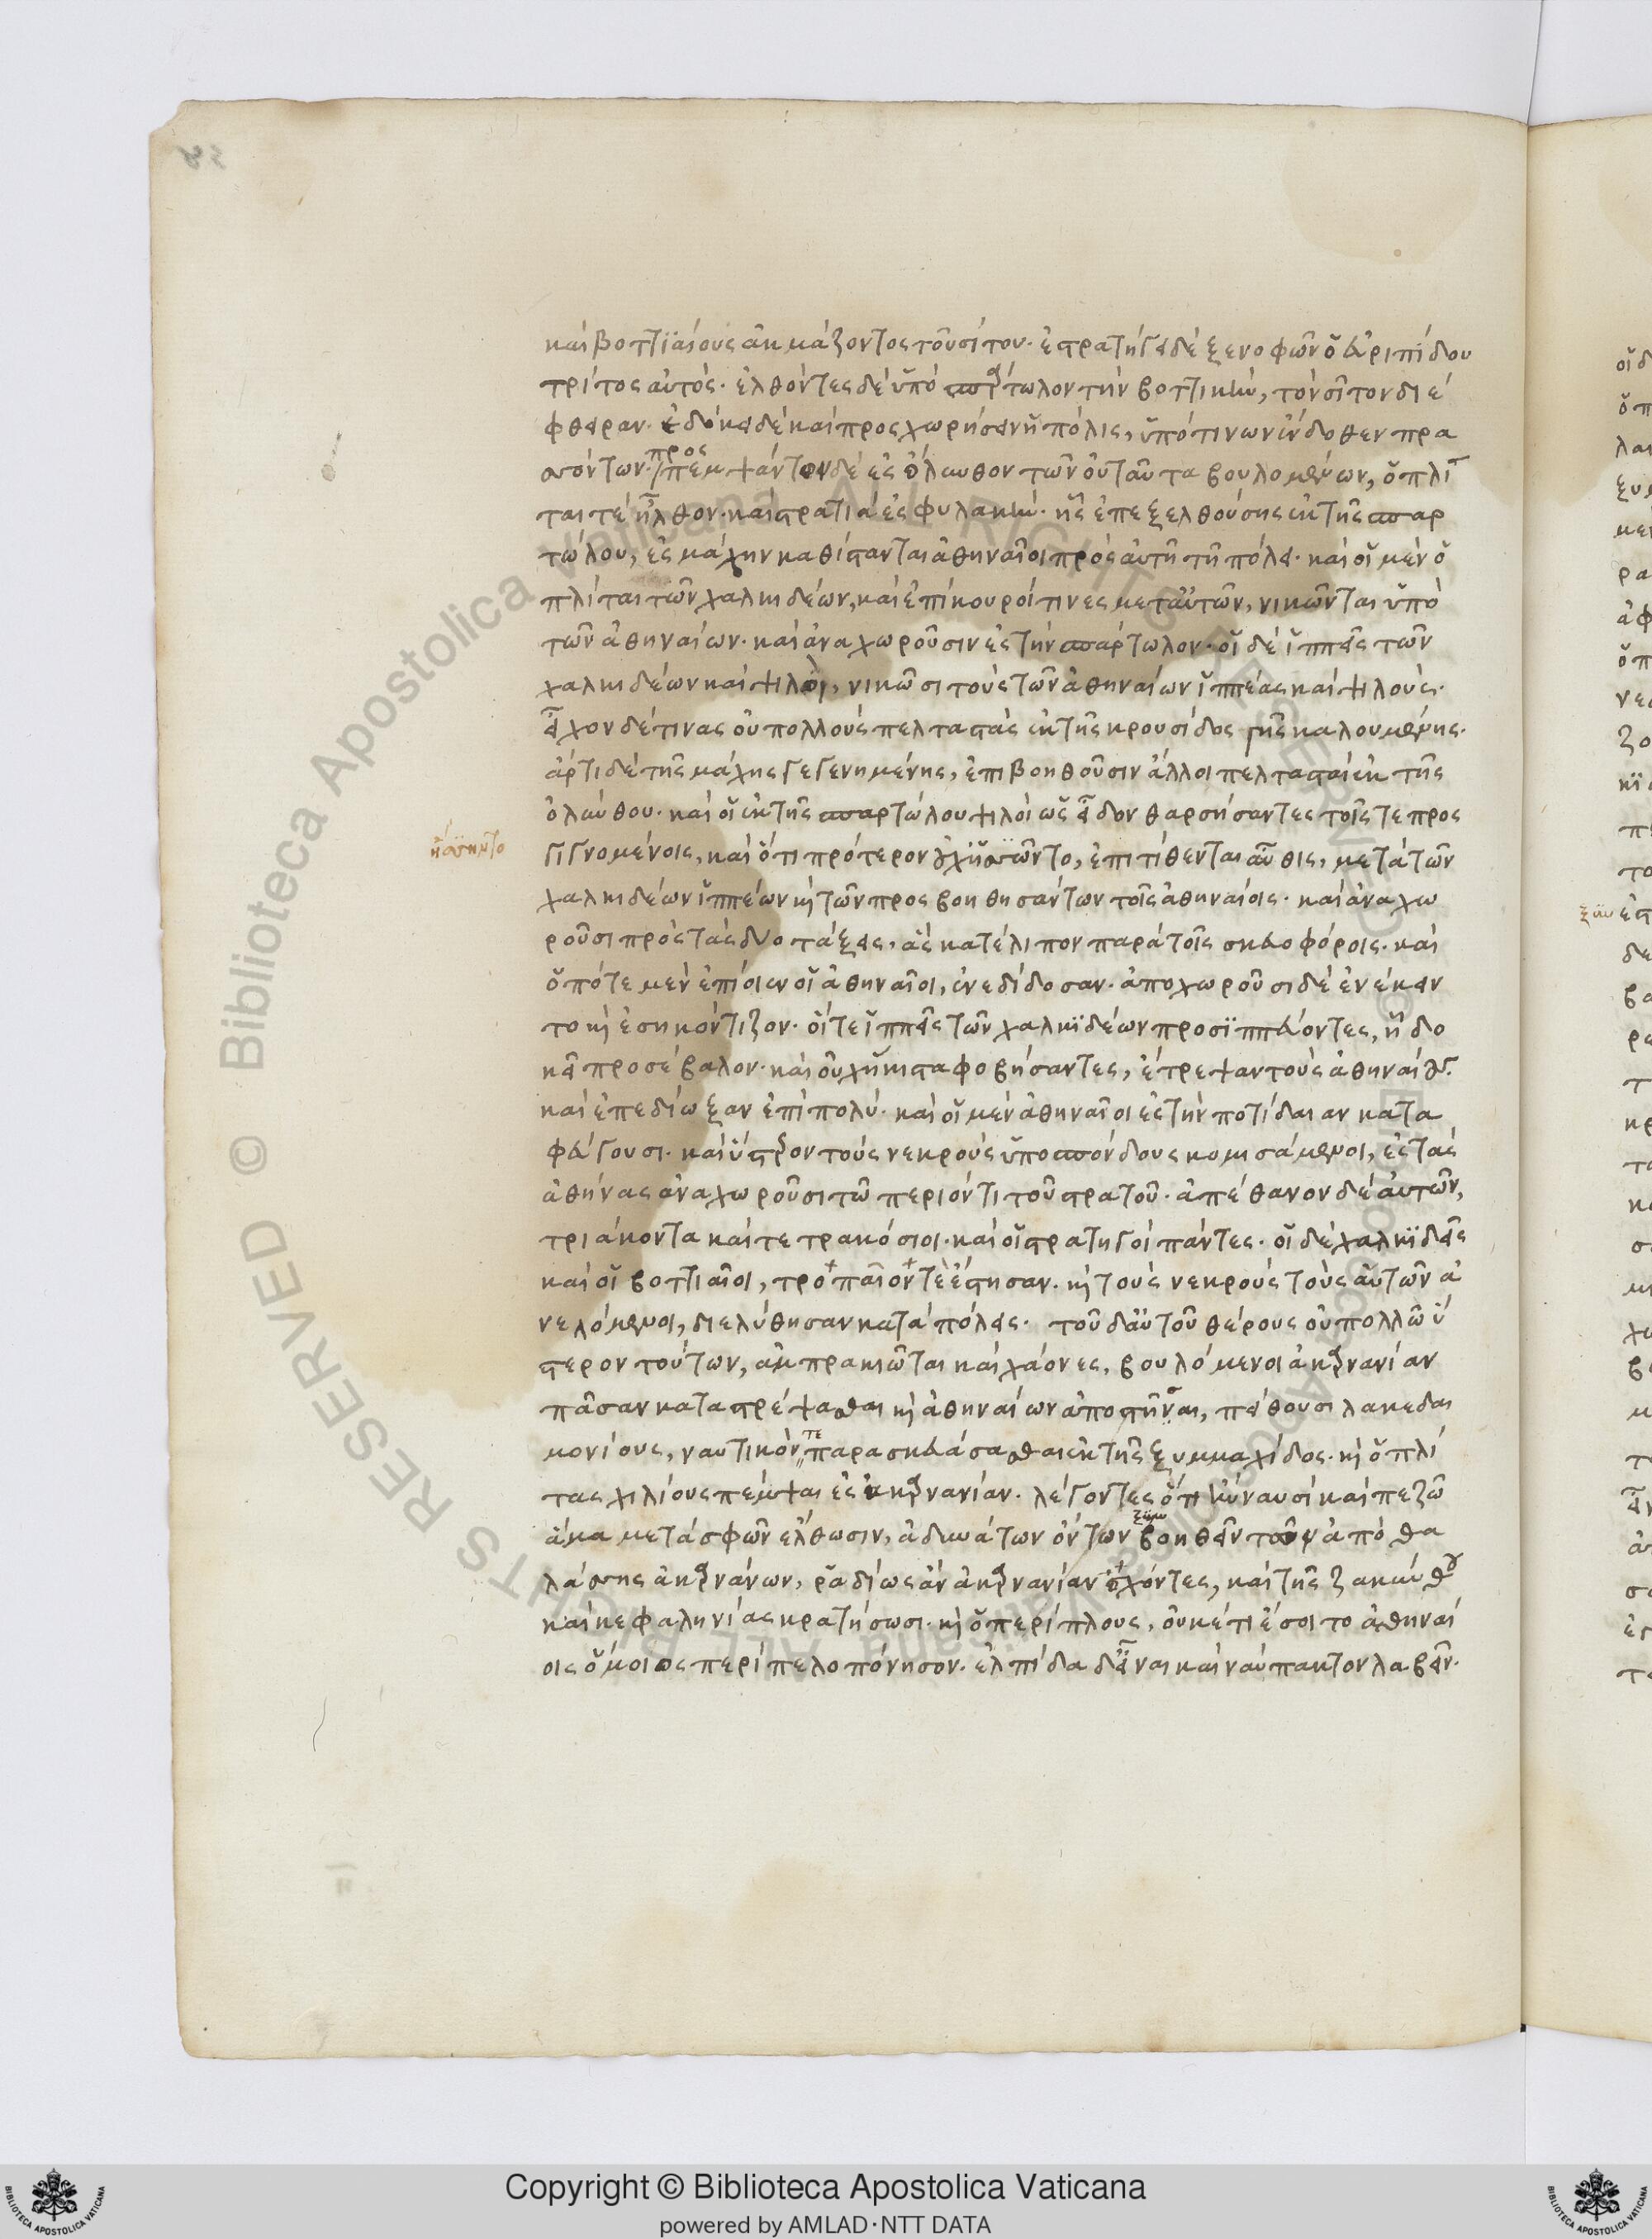 καὶ βοττιαίους ἀκμάζοντος τοῦ σίτου· ἐστρατήγει δὲ ξενοφῶν ὁ εὐριπίδου
τρίτος αὐτός· ἐλθόντες δὲ ὑπὸ σπάρτωλον τὴν βοττικὴν, τὸν σῖτον διέ
φθειραν· ἐδόκει δὲ καὶ προσχωρήσειν ἡ πόλις, ὑπό τινων ἔνδοθεν πρα
σσόντων· προς
πεμψάντων δὲ ἐς ὄλυνθον τῶν οὐ ταῦτα βουλομένων, ὁπλῖ
ταί τε ἦλθον· καὶ στρατιὰ ἐς φυλακήν· ἧς ἐπεξελθούσης ἐκ τῆς σπαρ
τώλου, ἐς μάχην καθίστανται ἀθηναῖοι πρὸς αὐτῆ τῆ πόλει· καὶ οἱ μὲν ὁ
πλῖται τῶν χαλκιδέων, καὶ ἐπίκουροί τινες μετ αὐτῶν, νικῶνται ὑπὸ
τῶν ἀθηναίων· καὶ ἀναχωροῦσιν ἐς τὴν σπάρτωλον· οἱ δὲ ἱππεῖς τῶν
χαλκιδέων καὶ ψιλοὶ, νικῶσι τοὺς τῶν ἀθηναίων ἱππέας καὶ ψιλούς·
εἶχον δέ τινας οὐ πολλοὺς πελταστὰς ἐκ τῆς κρουσίδος γῆς καλουμένης·
ἄρτι δὲ τῆς μάχης γεγενημένης, ἐπιβοηθοῦσιν ἄλλοι πελτασταὶ ἐκ τῆς
ὀλύνθου· καὶ οἱ ἐκ τῆς σπαρτώλου ψιλοὶ ὡς εἶδον θαρσήσαντες τοῖς τε προς
γιγνομένοις, καὶ ὅτι πρότερον οὐχ ἡσσῶντο, ἐπιτίθενται αὖθις, μετὰ τῶν
χαλκιδέων ἱππέων καὶ τῶν προσβοηθησάντων τοῖς ἀθηναίοις· καὶ ἀναχω
ροῦσι πρὸς τὰς δύο τάξεις, ἃς κατέλιπον παρὰ τοῖς σκευοφόροις· καὶ
ὁπότε μὲν ἐπίοιεν οἱ ἀθηναῖοι, ἐνεδίδοσαν· ἀποχωροῦσι δὲ ἐνέκειν
το καὶ ἐσηκόντιζον· οἵ τε ἱππεῖς τῶν χαλκιδέων προσιππεύοντες, ἧ δο
κεῖ προσέβαλον· καὶ οὐχ ἥκιστα φοβήσαντες, ἔτρεψαν τοὺς ἀθηναίους·
καὶ ἐπεδίωξαν ἐπὶ πολύ· καὶ οἱ μὲν ἀθηναῖοι ἐς τὴν ποτίδαιαν κατα
φεύγουσι· καὶ ὕστερον τοὺς νεκροὺς ὑποσπόνδους κομισάμενοι, ἐς τὰς
ἀθήνας ἀναχωροῦσι τῶ περιόντι τοῦ στρατοῦ· ἀπέθανον δὲ αὐτῶν,
τριάκοντα καὶ τετρακόσιοι· καὶ οἱ στρατηγοὶ πάντες· οἱ δὲ χαλκιδεῖς
καὶ οἱ βοττιαῖοι, τροπαῖον τὲ ἔστησαν· καὶ τοὺς νεκροὺς τοὺς αὑτῶν ἀ
νελόμενοι, διελύθησαν κατὰ πόλεις· τοῦ δ αὐτοῦ θέρους οὐ πολλῶ ὕ
στερον τούτων, ἀμπρακιῶται καὶ χάονες, βουλόμενοι ἀκαρνανίαν
πᾶσαν καταστρέψασθαι καὶ ἀθηναίων ἀποστῆναι, πείθουσι λακεδαι
μονίους, ναυτικόν τε παρασκευάσασθαι ἐκ τῆς ξυμμαχίδος· καὶ ὁπλί
τας χιλίους πέμψαι ἐς ἀκαρνανίαν· λέγοντες ὅτι ἢν ναυσὶ καὶ πεζῶ
ἅμα μετὰ σφῶν ἔλθωσιν, ἀδυνάτων ὄντων ξυμ
βοηθεῖν τῶν ἀπὸ θα
λάσσης ἀκαρνάνων, ῥαδίως ἂν ἀκαρνανίαν σχόντες, καὶ τῆς ζακύνθου
καὶ κεφαληνίας κρατήσωσι· καὶ ὁ περίπλους, οὐκέτι ἔσοιτο ἀθηναί
οις ὁμοίως περὶ πελοπόνησον· ἐλπίδα δ εἶναι καὶ ναύπακτον λαβεῖν·
Copyright © Biblioteca Apostolica Vaticana
powered by AMLAD·NTT DATA